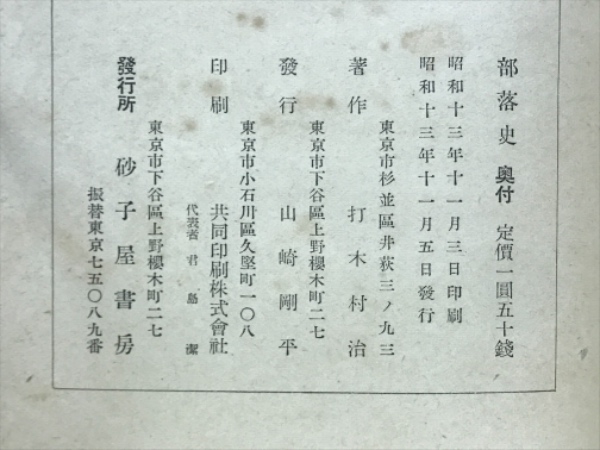 部落史 奥付 定價一圓五十錢
昭和十三年十一月三日印刷
昭和十三年十一月五日發行
東京市杉並區井荻三ノ九三
著作 打木村治
東京市下谷區上野櫻木町二七
發行 山崎剛平
東京市小石川區久堅町一〇八
印刷 共同印刷株式會社
代表者 君島潔
東京市下谷區上野櫻木町二七
發行所 砂子屋書房
振替東京七五〇八九番